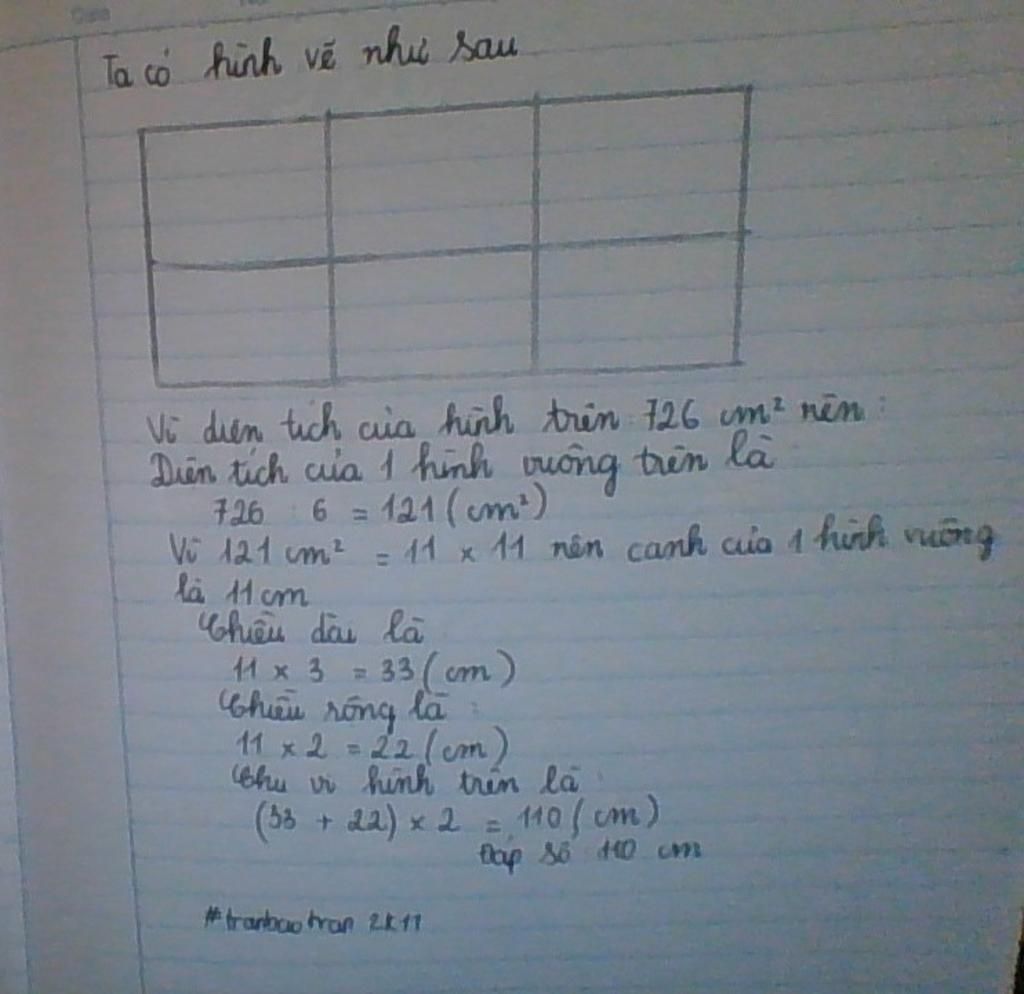 Ta có hình vẽ như sau
Vì diện tích của hình trên 726 cm² nên :
Diện tích của 1 hình vuông trên là
726 : 6 = 121 (cm²)
Vì 121 cm² = 11 x 11 nên cạnh của 1 hình vuông
là 11 cm
Chiều dài là
11 x 3 = 33 (cm)
Chiều rộng là :
11 x 2 = 22 (cm)
Chu vi hình trên là :
(33 + 22) x 2 = 110 (cm)
Đáp số 110 cm
#tranbaotran 2k11